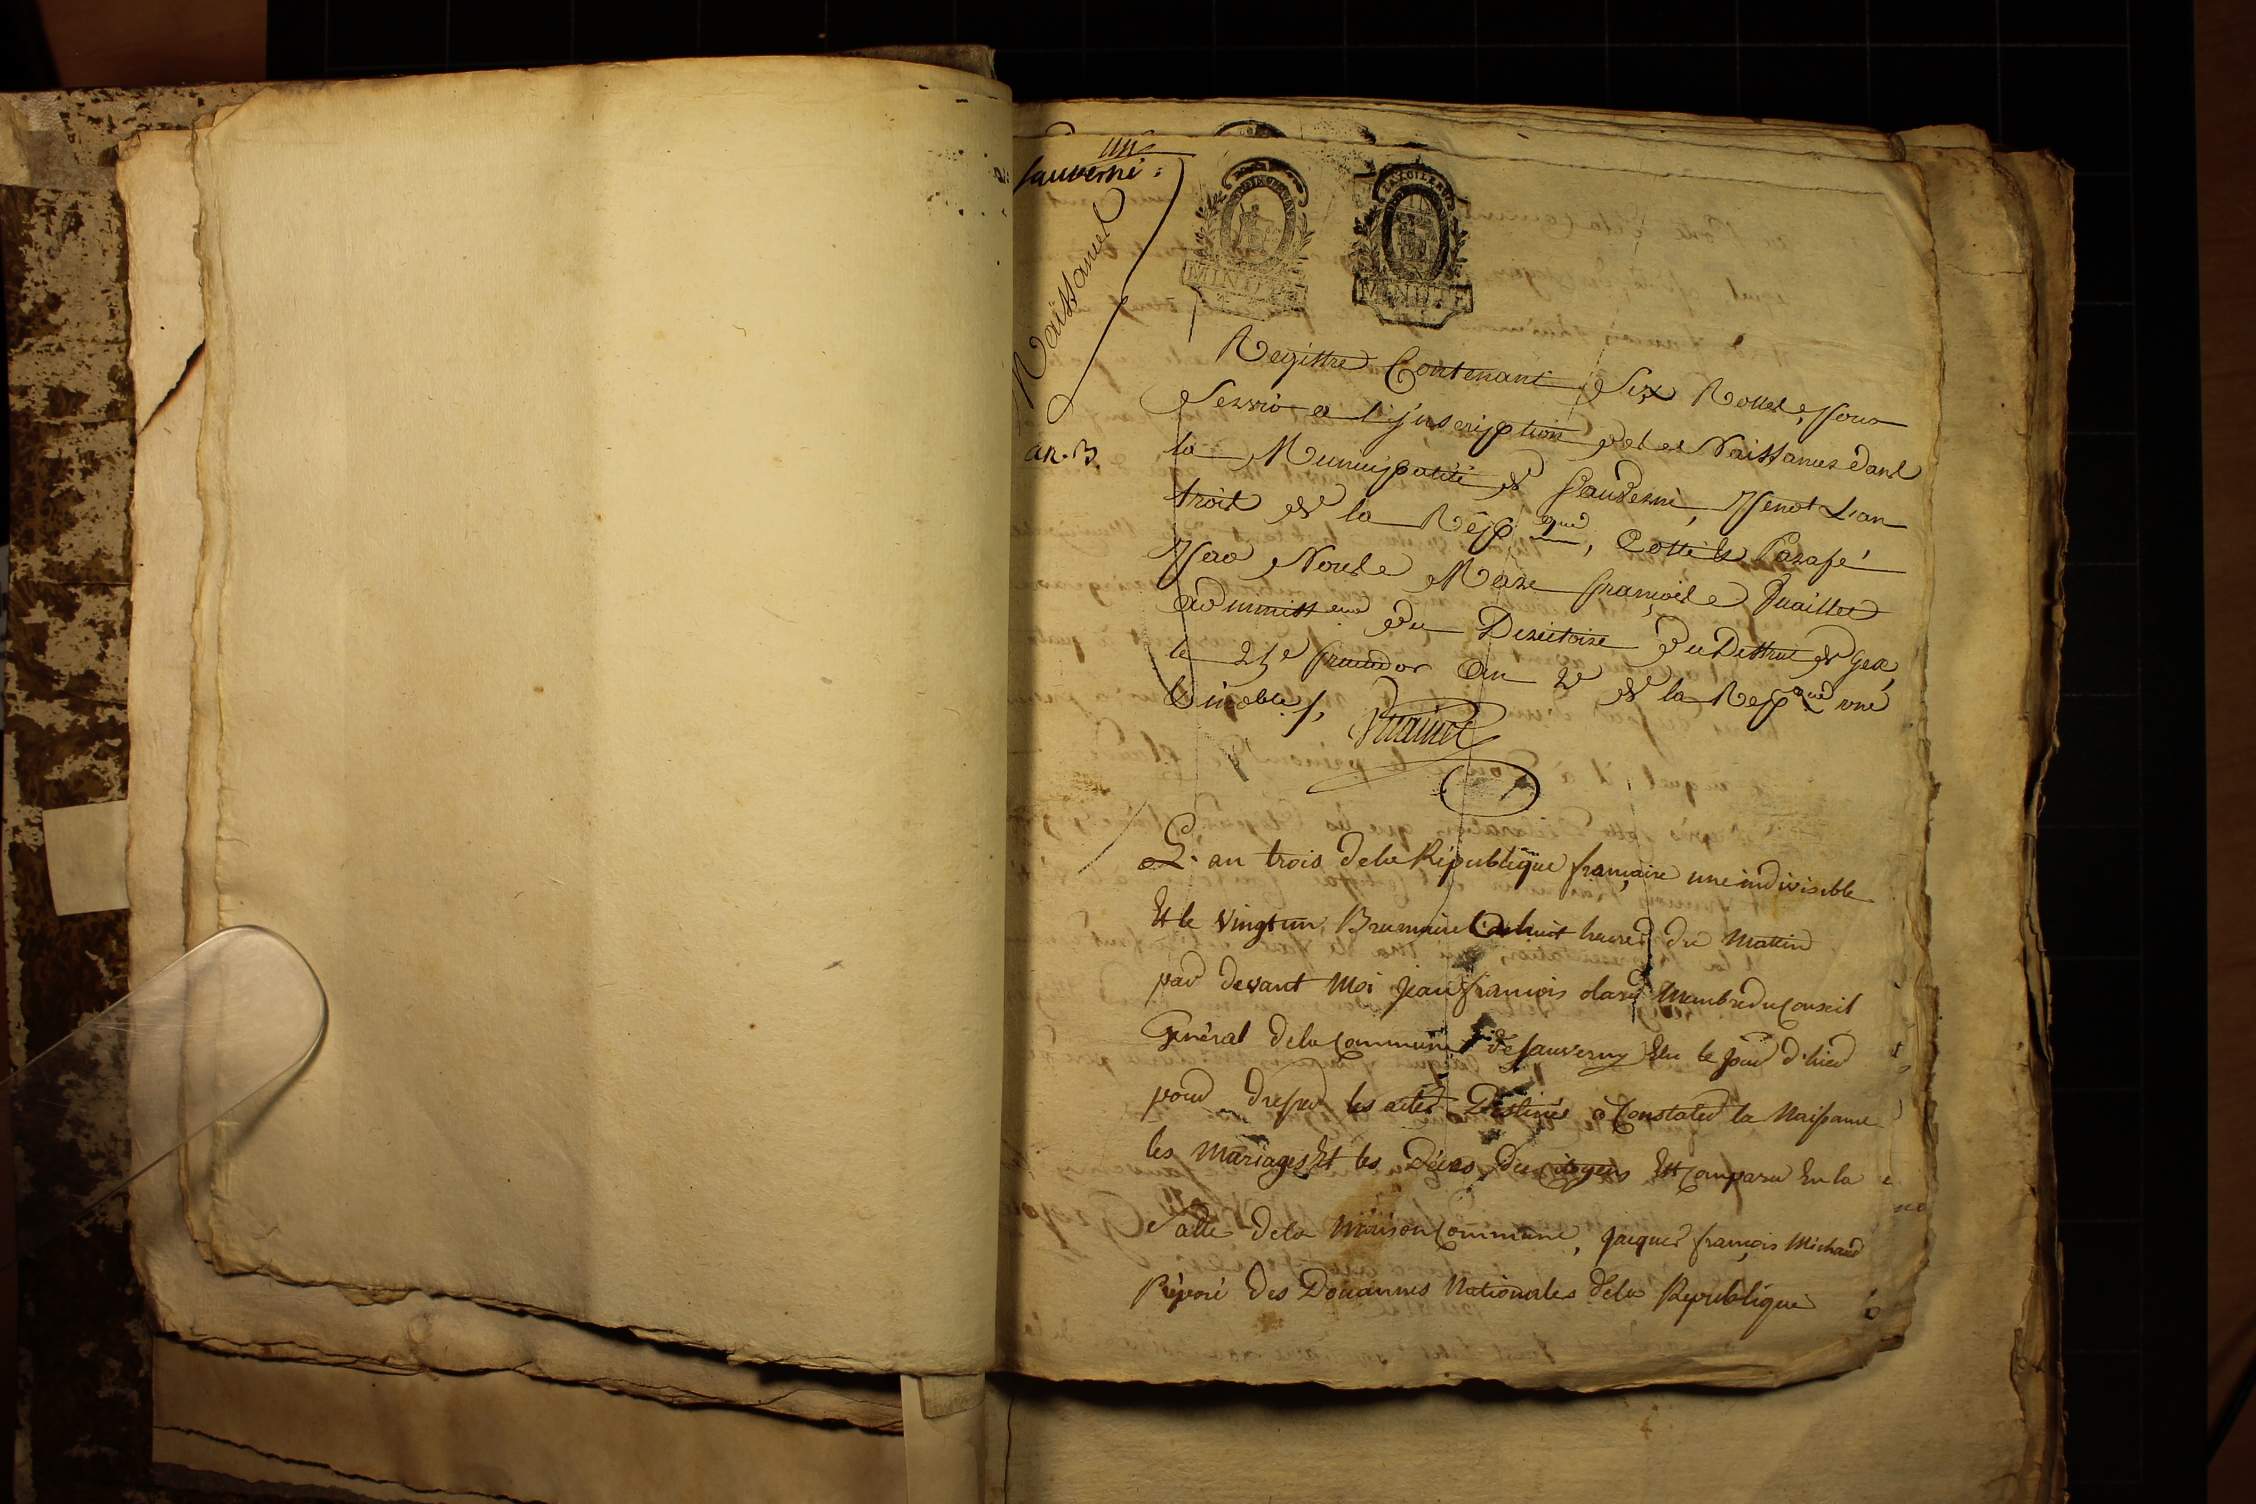 un
Sauverni :
Naissances
an. 3
MINUTE
MINUTE
Registre Contenant Six Rolles, pour
Servir a l'jnscription des Naissances dans
la Municipalité de Sauverni, pendt L'an
trois de la Rép.que, Cotté & Parafé
par Nous Marc françois
administ du Directoire du District de Gex,
le fructidor an 2e de la Rep.que une
&
L'an trois de la République française une indivisible
Et le vingt un Brumaire a huit heures du Mattin
par devant Moi Jean françois Membre du Conseil
Général de la Commune de Sauverny Elu le jour d'hier
pour dresser les actes Destinés a Constater la Naissance
les Mariages Et les Décès des Citoyens Est Comparu En la
Salle de la Maison Commune, Jacques françois Michaud
Préposé des Douannes Nationales de la République